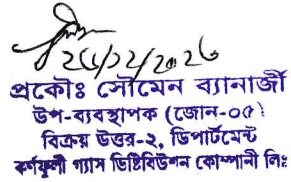 ২৫/১২/২০২৩
প্রকৌঃ সৌমেন ব্যানার্জী
উপ-ব্যবস্থাপক (জোন-০৫)
বিক্রয় উত্তর-২, ডিপার্টমেন্ট
কর্ণফুলী গ্যাস ডিষ্ট্রিবিউশন কোম্পানী লিঃ